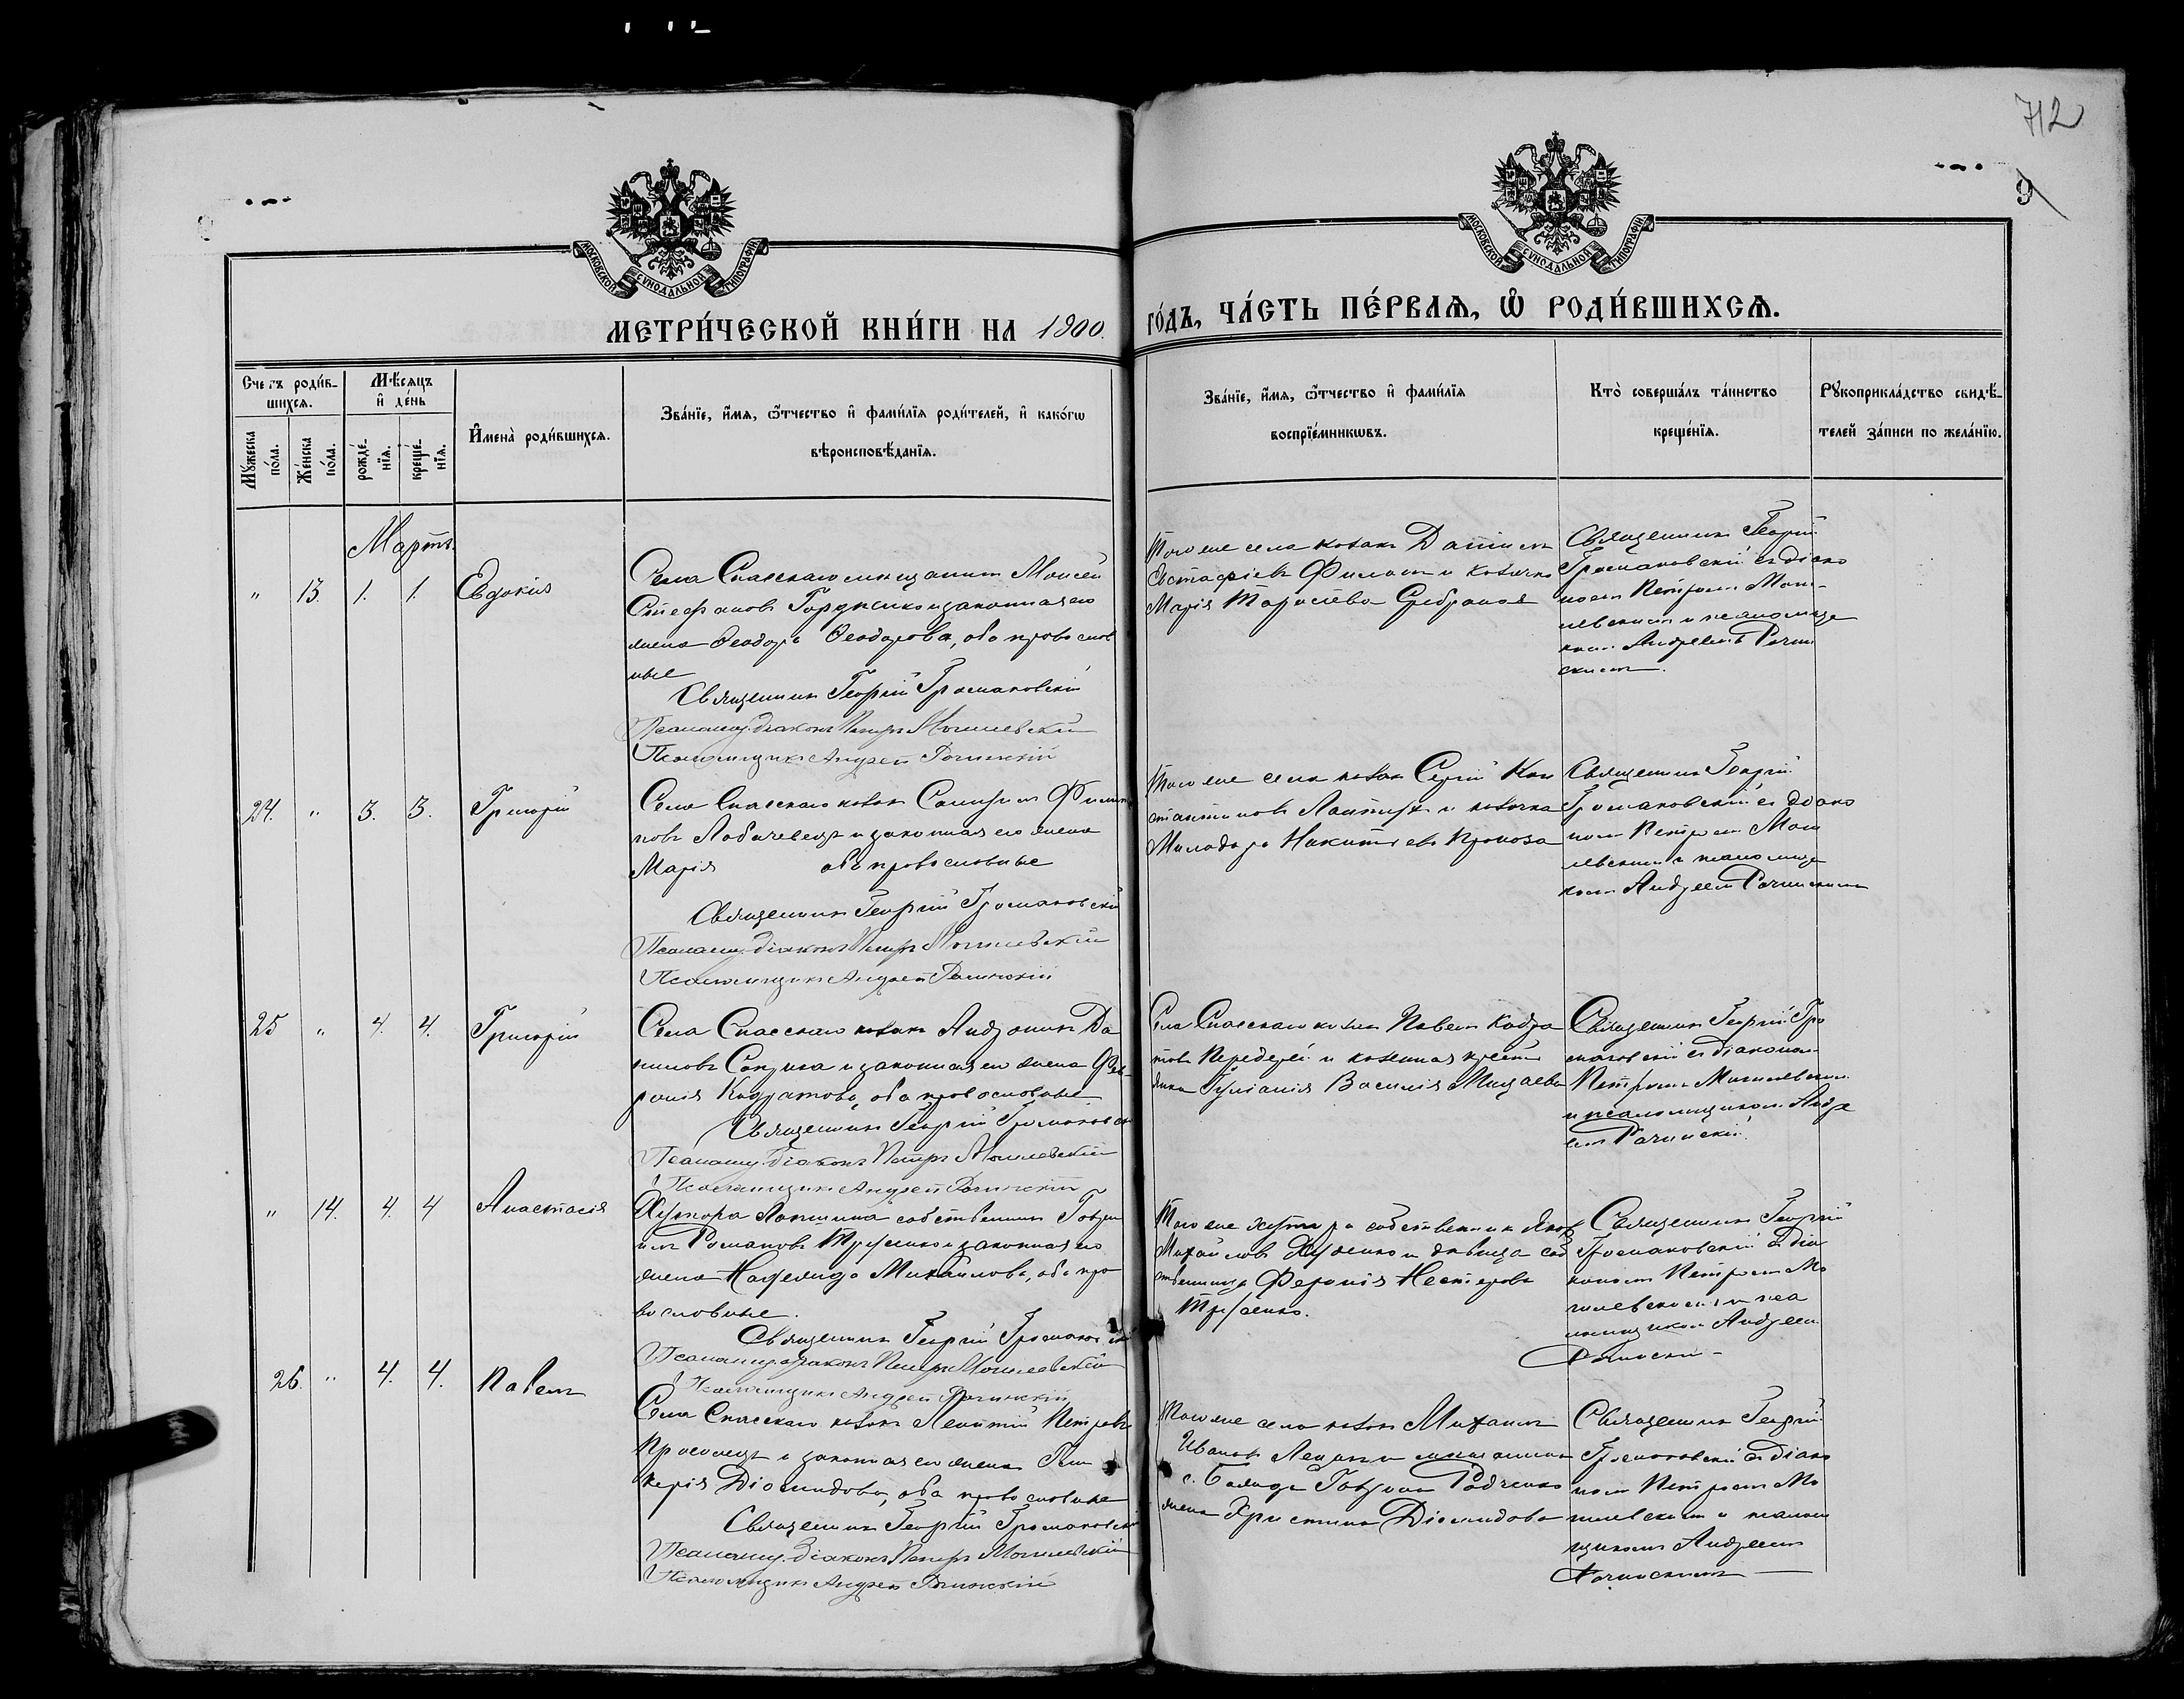 712
9
МОСКОВСКОЙ СѴНОДАЛЬНОЙ ТИПОГРАФІИ
МОСКОВСКОЙ СѴНОДАЛЬНОЙ ТИПОГРАФІИ
МЕТРИ́ЧЕСКОЙ КНИ́ГИ НА 1900.
ГО́ДЪ, ЧА́СТЬ ПЕ́РВАѦ, Ѿ РОДИ́ВШИХСѦ.
Счетъ роди́в-
шихсѧ.
Мꙋжеска
по́ла.
Же́нска
по́ла.
Мѣ́сѧцъ
и҆ де́нь
рожде́-
нїѧ.
креще́-
нїѧ.
И҆мена̀ роди́вшихсѧ.
Зва́нїе, и҆́мѧ, ѻ҆́тчество и҆ фами́лїѧ роди́телей, и҆ како́гѡ
вѣроисповѣ́данїѧ.
Зва́нїе, и҆́мѧ, ѻ҆́тчество и҆ фами́лїѧ
воспрїе́мникѡвъ.
Кто̀ соверша́лъ та́инство
креще́нїѧ.
Рꙋкоприкла́дство свидѣ́-
телей за́писи по жела́нїю.
Мартъ.
" 13. 1. 1. Евдокія
Села Спасскаго мещанин Моисей
Стефановъ Гордиенко и законная его
жена Феодора Феодорова, оба православ
ные
Священникъ Георгій Громаковскій
Псаломщ. діаконъ Петръ Могилевскій
Псаломщикъ Андрей Рачинскій
Того же села козакъ Даниилъ
Евстафіевъ Филь и козачка
Марія Тарасіева
Священникъ Георгій
Громаковскій съ діако
номъ Петромъ Моги-
левскимъ и псаломщи
комъ Андреемъ Рачин
скимъ.
24. " 3. 3. Григорій
Села Спасскаго козакъ Филип
повъ Лобачевецъ и законная его жена
Марія оба православные
Священникъ Георгій Громаковскій
Псаломщ. діаконъ Петръ Могилевскій
Псаломщикъ Андрей Рачинскій
Того же села козак Сергій Кон
стантиновъ и козачка
Никитіева
Священникъ Георгій
Громаковскій съ діако
номъ Петромъ Моги
левскимъ и псаломщи
комъ Андреемъ Рачинскимъ
25 " 4. 4. Григорій
Села Спасскаго козакъ Андроникъ Да
ниловъ и законная его жена Фев-
ронія Кодратова, оба православные
Священникъ Георгій Громаковскій
Псаломщ. діаконъ Петръ Могилевскій
Псаломщикъ Андрей Рачинскій
Села Спасскаго козакъ Павелъ Кодра
товъ Передерей и
Іуліанія Василія
Священникъ Георгій Гро
маковскій съ діакономъ
Петромъ Могилевскимъ
и псаломщикомъ Андре
емъ Рачинскій
" 14. 4. 4 Анастасія
Хутора Лапшина собственникъ Гаврі
илъ Романовъ и законная его
жена Михаилова, оба пра
вославные.
Священникъ Георгій Громаковскій
Псаломщ. діаконъ Петръ Могилевскій
Псаломщикъ Андрей Рачинскій
Того же хутора собственникъ Яковъ
Михайловъ и девица соб
ственница Феронія Нестерова
Священникъ Георгій
Громаковскій съ діа
кономъ Петромъ Мо
гилевскимъ и пса
ломщикомъ Андреемъ
Рачински-
26. " 4. 4. Павелъ
Села Спасскаго козакъ Леонтій Петровъ
и законная его жена Гли
керія Діомидова, оба православные
Священникъ Георгій Громаковскій
Псаломщ. діаконъ Петръ Могилевскій
Псаломщикъ Андрей Рачинскій
Того же села козак Михаилъ
Ивановъ и мещанина
Радченко
жена Христина Діомидова
Священникъ Георгій
Громаковскій съ діако
номъ Петромъ Мо
гилевскимъ и псалом
щикомъ Андреемъ
Рачинскимъ